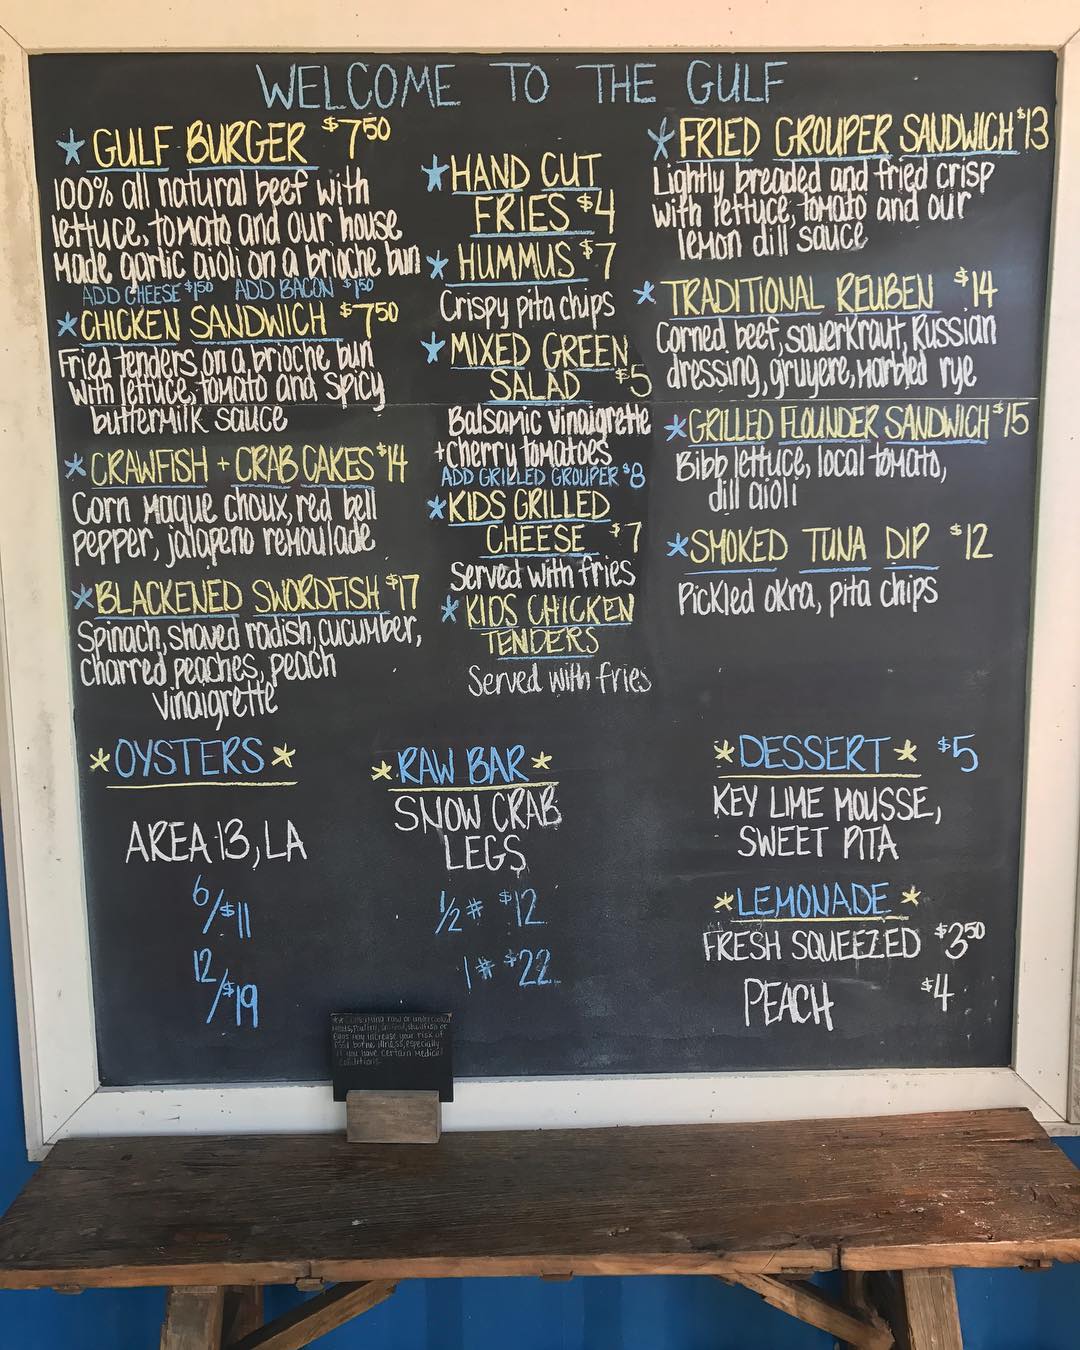 WELCOME TO THE GULF
* GULF BURGER $7.50
100% all natural beef with
lettuce, tomato and our house
made garlic aioli on a brioche bun
ADD CHEESE $1.50 ADD BACON $1.50
* CHICKEN SANDWICH $7.50
Fried tenders on a brioche bun
with lettuce, tomato and spicy
buttermilk sauce
* CRAWFISH + CRAB CAKES $14
Corn maque choux, red bell
pepper, jalapeno remoulade
* BLACKENED SWORDFISH $17
Spinach, shaved radish, cucumber,
charred peaches, peach
vinaigrette
* HAND CUT
FRIES $4
* HUMMUS $7
Crispy pita chips
* MIXED GREEN
SALAD $5
Balsamic vinaigrette
+ cherry tomatoes
ADD GRILLED GROUPER $8
* KIDS GRILLED
CHEESE $7
Served with fries
* KIDS CHICKEN
TENDERS
Served with fries
* FRIED GROUPER SANDWICH $13
Lightly breaded and fried crisp
with lettuce, tomato and our
lemon dill sauce
* TRADITIONAL REUBEN $14
Corned beef, sauerkraut, Russian
dressing, gruyere, marbled rye
* GRILLED FLOUNDER SANDWICH $15
Bibb lettuce, local tomato,
dill aioli
* SMOKED TUNA DIP $12
Pickled okra, pita chips
* OYSTERS *
AREA 13, LA
6/$11
12/$19
* RAW BAR *
SNOW CRAB
LEGS
1/2 # $12
1 # $22
* DESSERT * $5
KEY LIME MOUSSE,
SWEET PITA
* LEMONADE *
FRESH SQUEEZED $3.50
PEACH $4
** Consuming raw or undercooked
meats, poultry, seafood, shellfish or
eggs may increase your risk of
food borne illness, especially
if you have certain medical
conditions